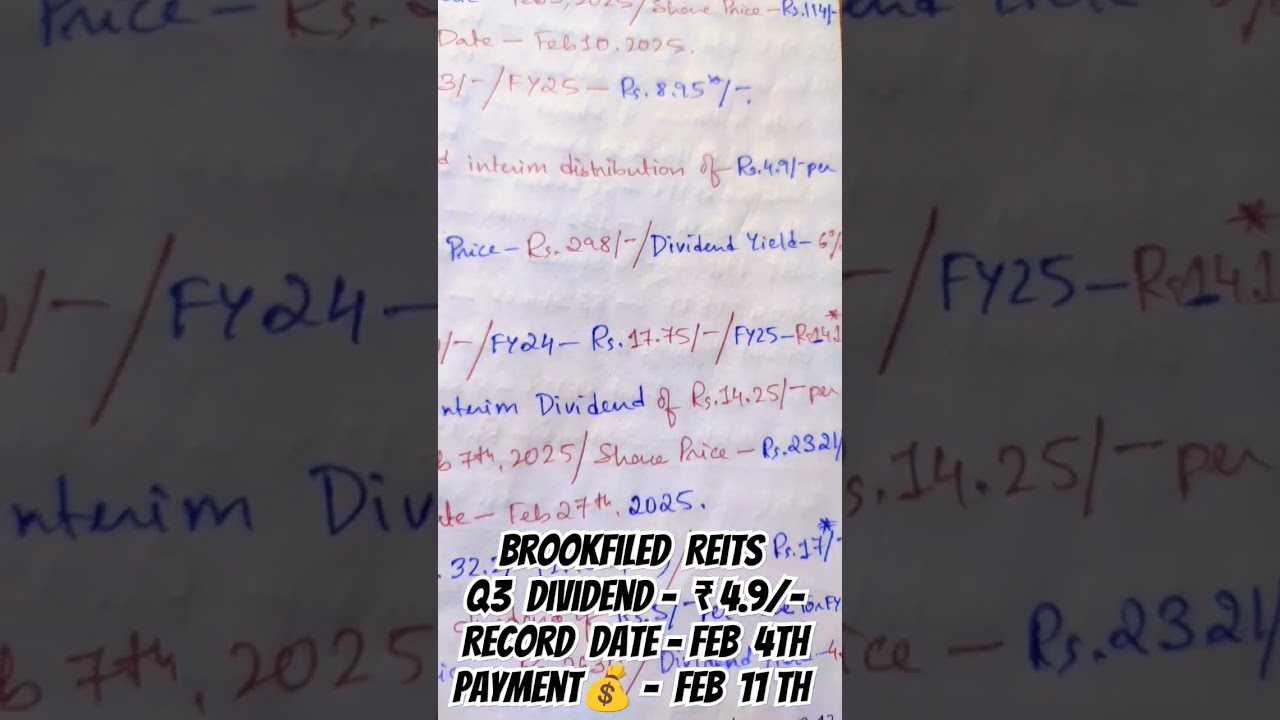 Feb 5, 2025/ Share Price - Rs.114/-
Date - Feb 10, 2025.
3/- / FY25 - Rs. 8.95*/-.
d interim distribution of Rs.4.9/- per
Price - Rs. 298/- / Dividend Yield - 6%
/- / FY24 - Rs. 17.75/- / FY25 - Rs.14.1*
nterim Dividend of Rs.14.25/- per
b 7th, 2025/ Share Price - Rs.2321/
ate - Feb 27th, 2025.
32.2 Rs.17*/-
BROOKFILED REITS
Q3 DIVIDEND - ₹ 4.9/-
RECORD DATE - FEB 4TH
PAYMENT💰 - FEB 11 TH